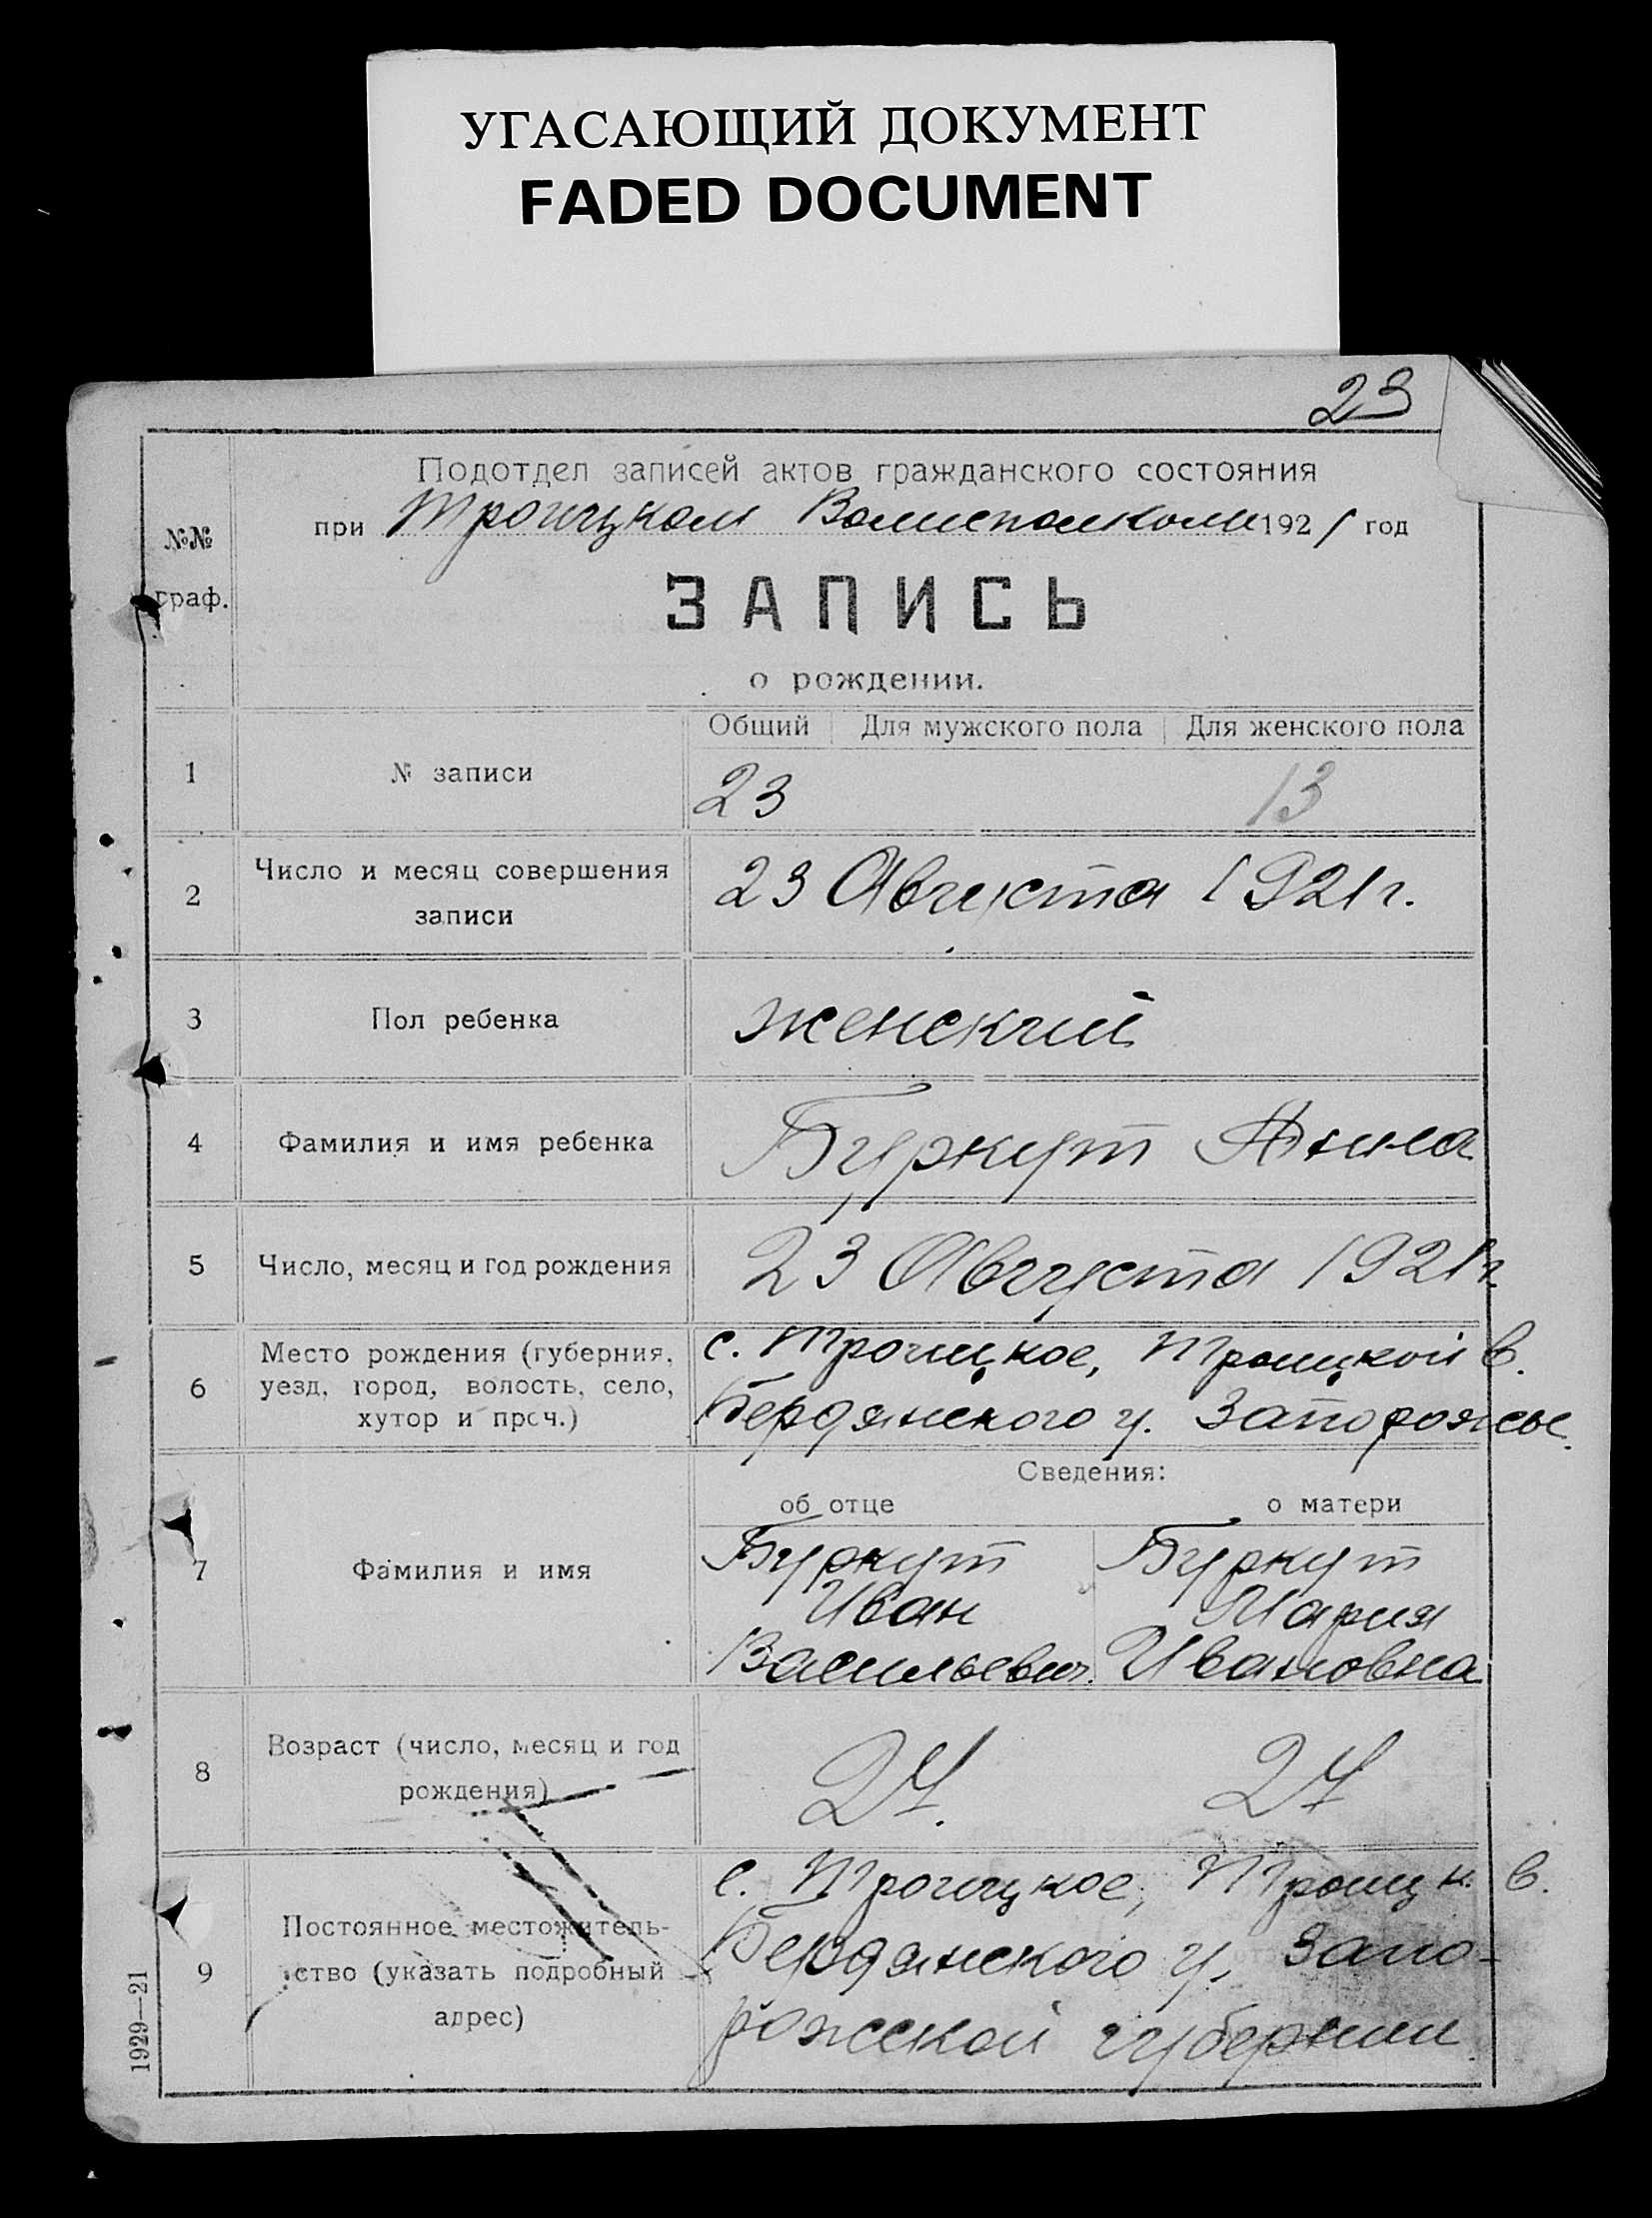 УГАСАЮЩИЙ ДОКУМЕНТ
FADED DOCUMENT
23
Подотдел записей актов гражданского состояния
при Троицком Волисполкоме 1921 год
№№
граф.
ЗАПИСЬ
о рождении.
Общий Для мужского пола Для женского пола
1 № записи 23 13
2 Число и месяц совершения
записи
23 Августа 1921 г.
3 Пол ребенка женский
4 Фамилия и имя ребенка Буркут Анна
5 Число, месяц и год рождения 23 Августа 1921 г.
6 Место рождения (губерния,
уезд, город, волость, село,
хутор и проч.)
с. Троицкое, Троицкой в.
Бердянского у. Запорожье.
Сведения:
об отце о матери
7 Фамилия и имя
Буркут
Иван
Васильевич.
Буркут
Мария
Ивановна
8 Возраст (число, месяц и год
рождения)
24. 24
9 Постоянное местожитель-
ство (указать подробный
адрес)
с. Троицкое, Троицк. в.
Бердянского у. Запо-
рожской губернии
1929—21